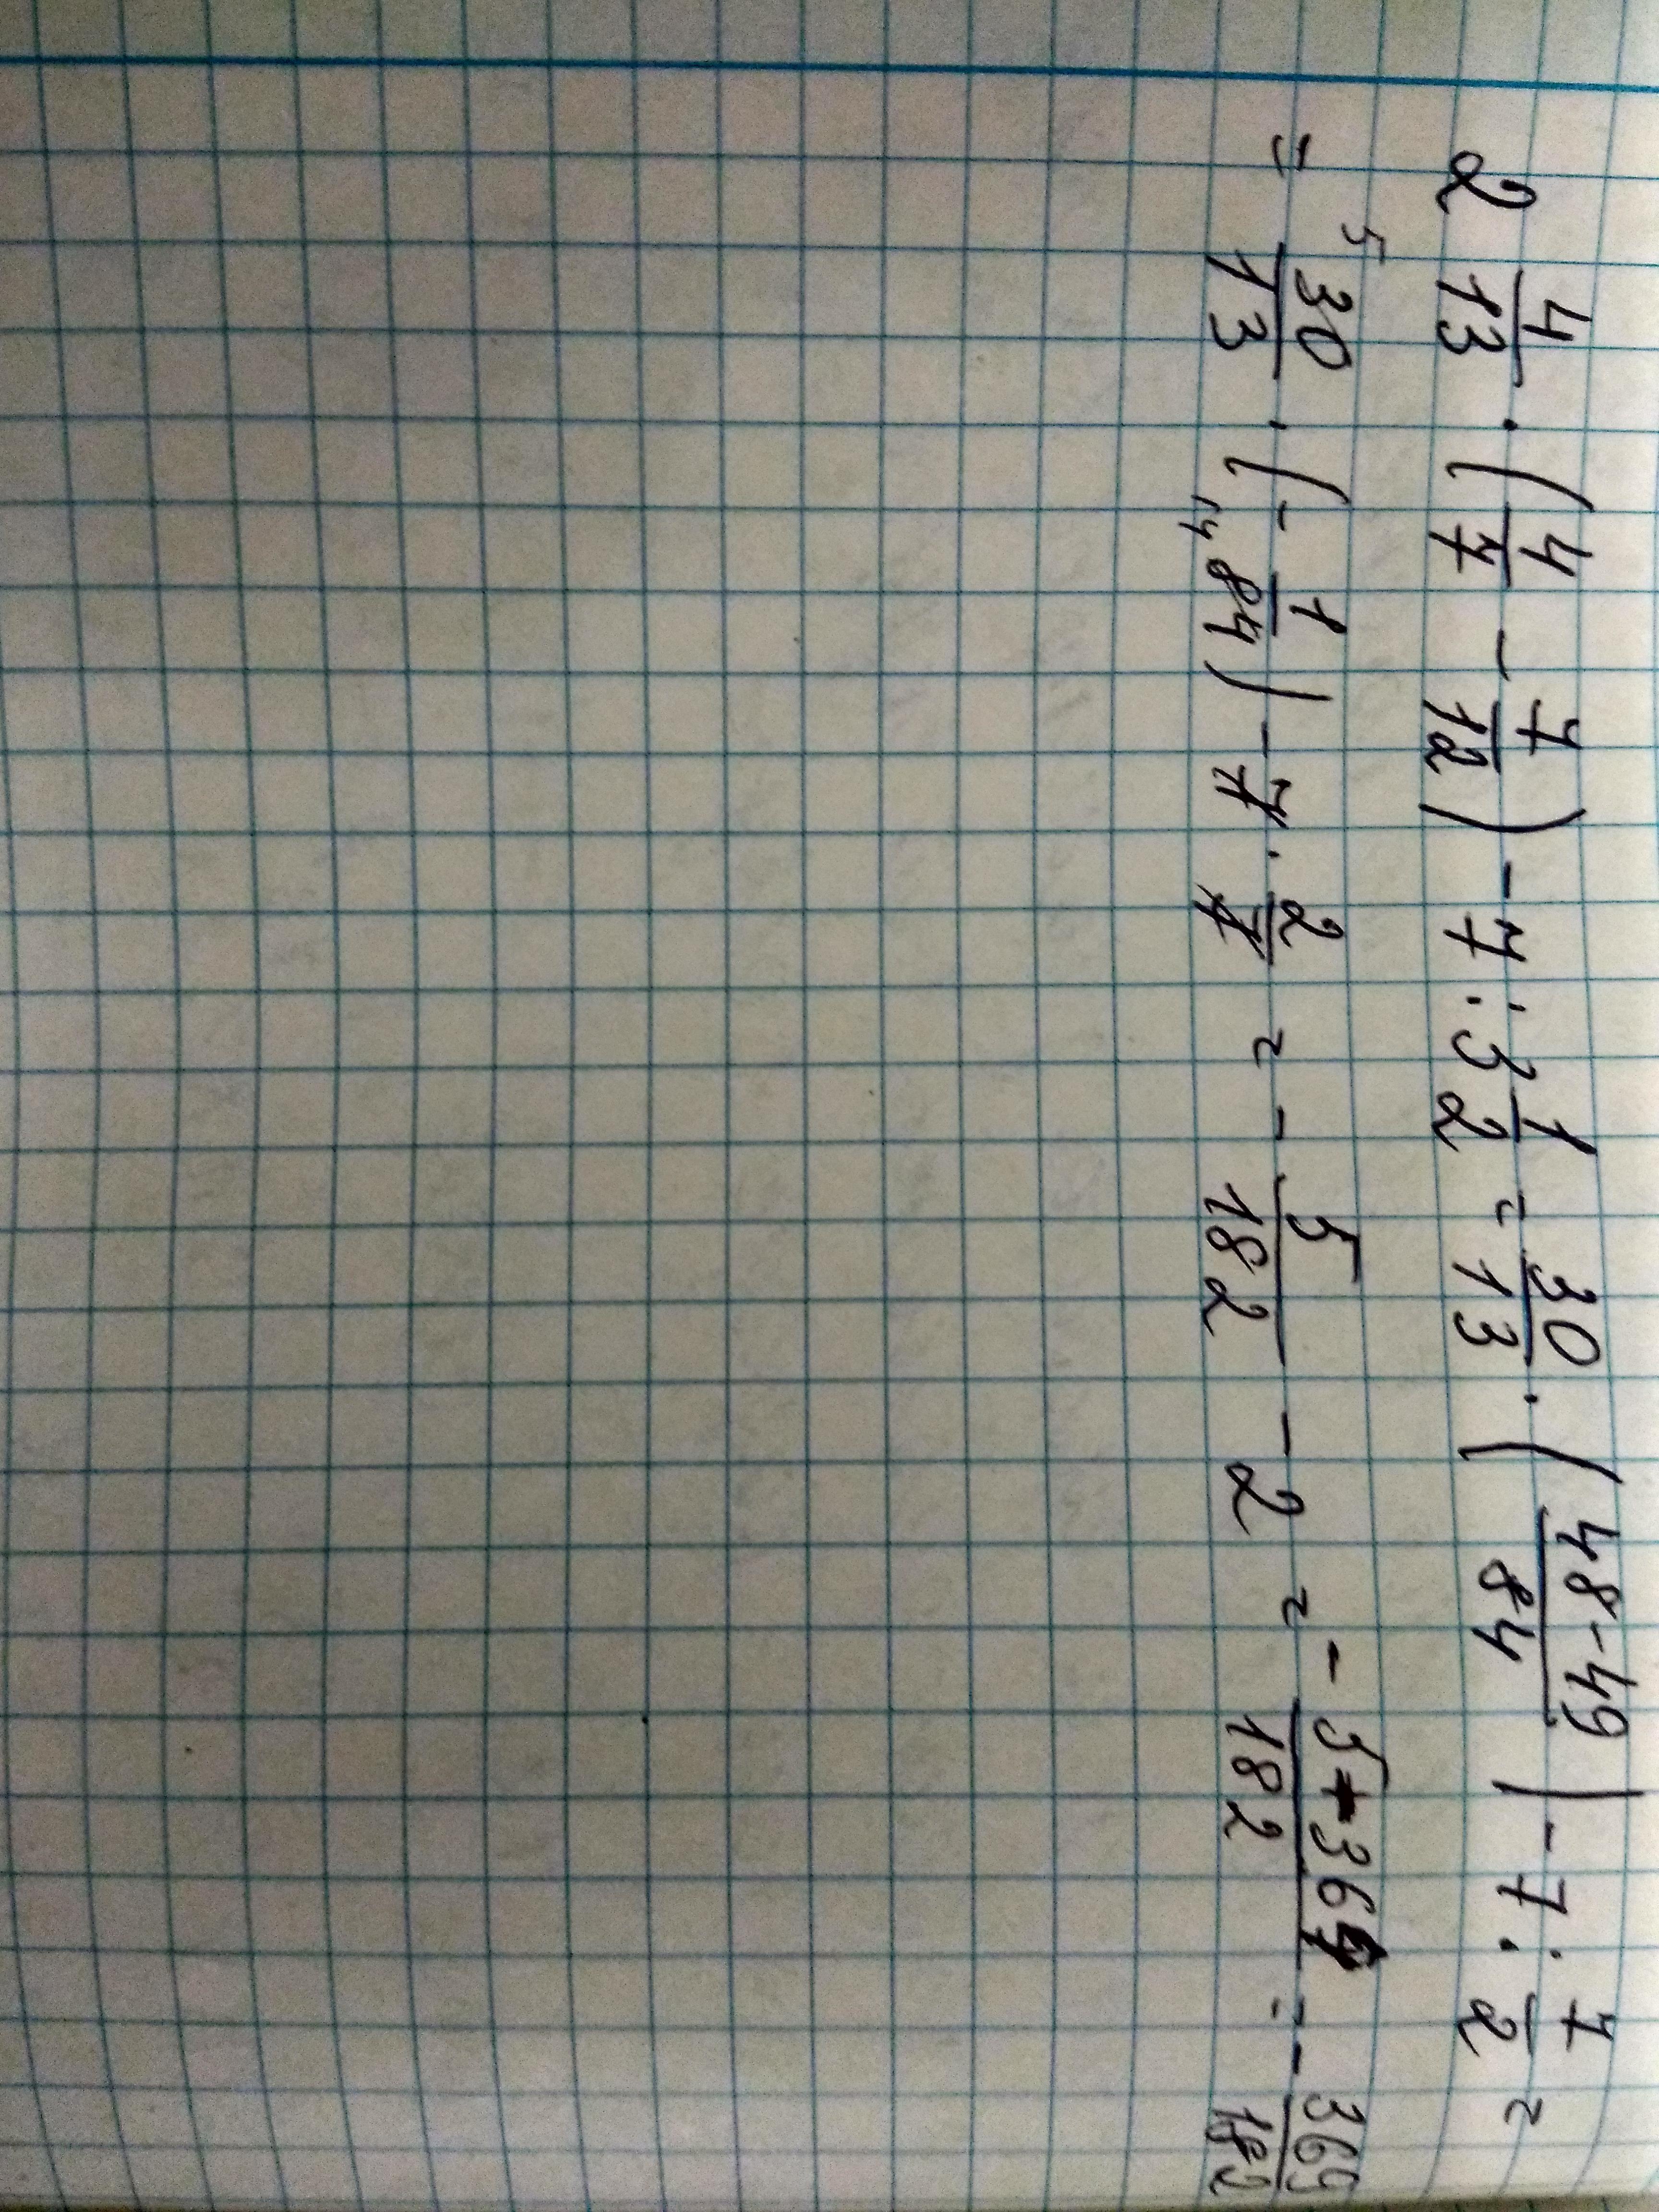 2 4/13 · (4/7 - 7/12) - 7 : 3 1/2 = 30/13 · (48-49/84) - 7 : 7/2 =
= 5 30/13 · (- 1/84 14) - 7 · 2/7 = - 5/182 - 2 = - 5+364/182 = - 369/182